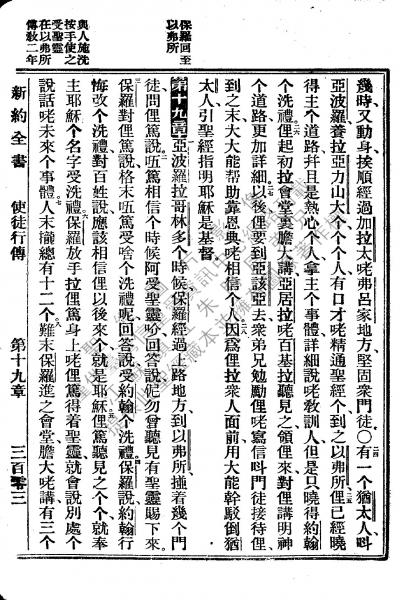 保羅回至
以弗所
與人施洗
按手使之
受聖靈
在以弗所
傳教二年
幾時又動身挨順經過加拉太咾弗呂家地方堅固衆門徒〇有一个猶太人呌
亞波羅養拉亞力山大个个个人有口才咾精通聖經个到之以弗所俚已經曉
得主个道路幷且是熱心个人拿主个事體詳細說咾敎訓人但是只曉得約翰
个洗禮俚起初拉會堂裏膽大講亞居拉咾百基拉聽見之領俚來對俚講明神
个道路更加詳細以後俚要到亞該亞去衆弟兄勉勵俚咾寫信呌門徒接待俚
到之末大大能帮助靠恩典咾相信个人因爲俚拉衆人面前用大能幹駁倒猶
太人引聖經指明耶穌是基督
第十九章亞波羅拉哥林多个時候保羅經過上路地方到以弗所撞着幾个門
徒問俚篤說㑚篤相信个時候阿受聖靈唦回答說伲勿曾聽見有聖靈賜下來
保羅對俚篤說格末㑚篤受啥个洗禮呢回答說受約翰个洗禮保羅說約翰行
悔改个洗禮對百姓說應該相信俚以後來个就是耶穌俚篤聽見之个个就奉
主耶穌个名字受洗禮保羅放手拉俚篤身上咾俚篤得着聖靈就會說別處个
說話咾未來个事體人末攏總有十二个難末保羅進之會堂膽大咾講有三个
新約全書 使徒行傳 第十九章 三百零三